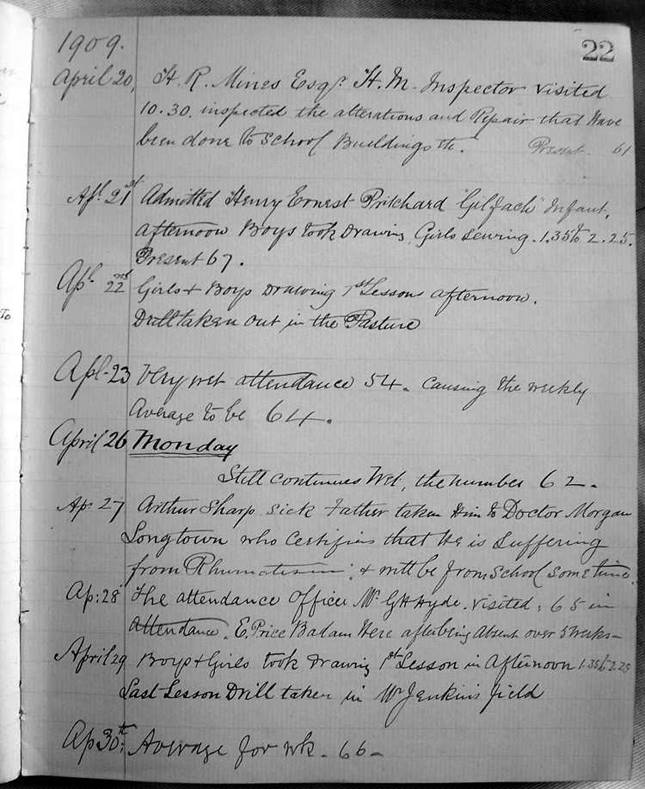 1909.
22
April 20, H. R. Mines Esqr. H. M. Inspector visited
10.30. inspected the alterations and Repair that Have
been done to School Buildings etc. Present 61
Apl 21st Admitted Henry Ernest Pritchard "Gilfach" Infant.
afternoon Boys took Drawing, Girls Sewing. 1.35 to 2.25.
Present 67.
Apl 22nd Girls & Boys Drawing 1st Lesson afternoon.
Drill taken out in the Pasture
Apl. 23 Very wet attendance 54. causing the weekly
Average to be 64.
April 26 Monday
Still continues Wet, the number 62.
Ap 27 Arthur Sharp Sick Father taken Him to Doctor Morgan
Longtown who Certifies that He is Suffering
from Rhumatism. & will be from School Sometime.
Ap: 28 The attendance Officer Mr G H Hyde. visited. 65 in
Attendance. E. Price Here after being Absent over 5 weeks -
April 29 Boys & Girls took Drawing 1st Lesson in Afternoon 1.35 to 2.25
Last Lesson Drill taken in Mr Jenkins field
Ap 30th: Average for wk. 66 -